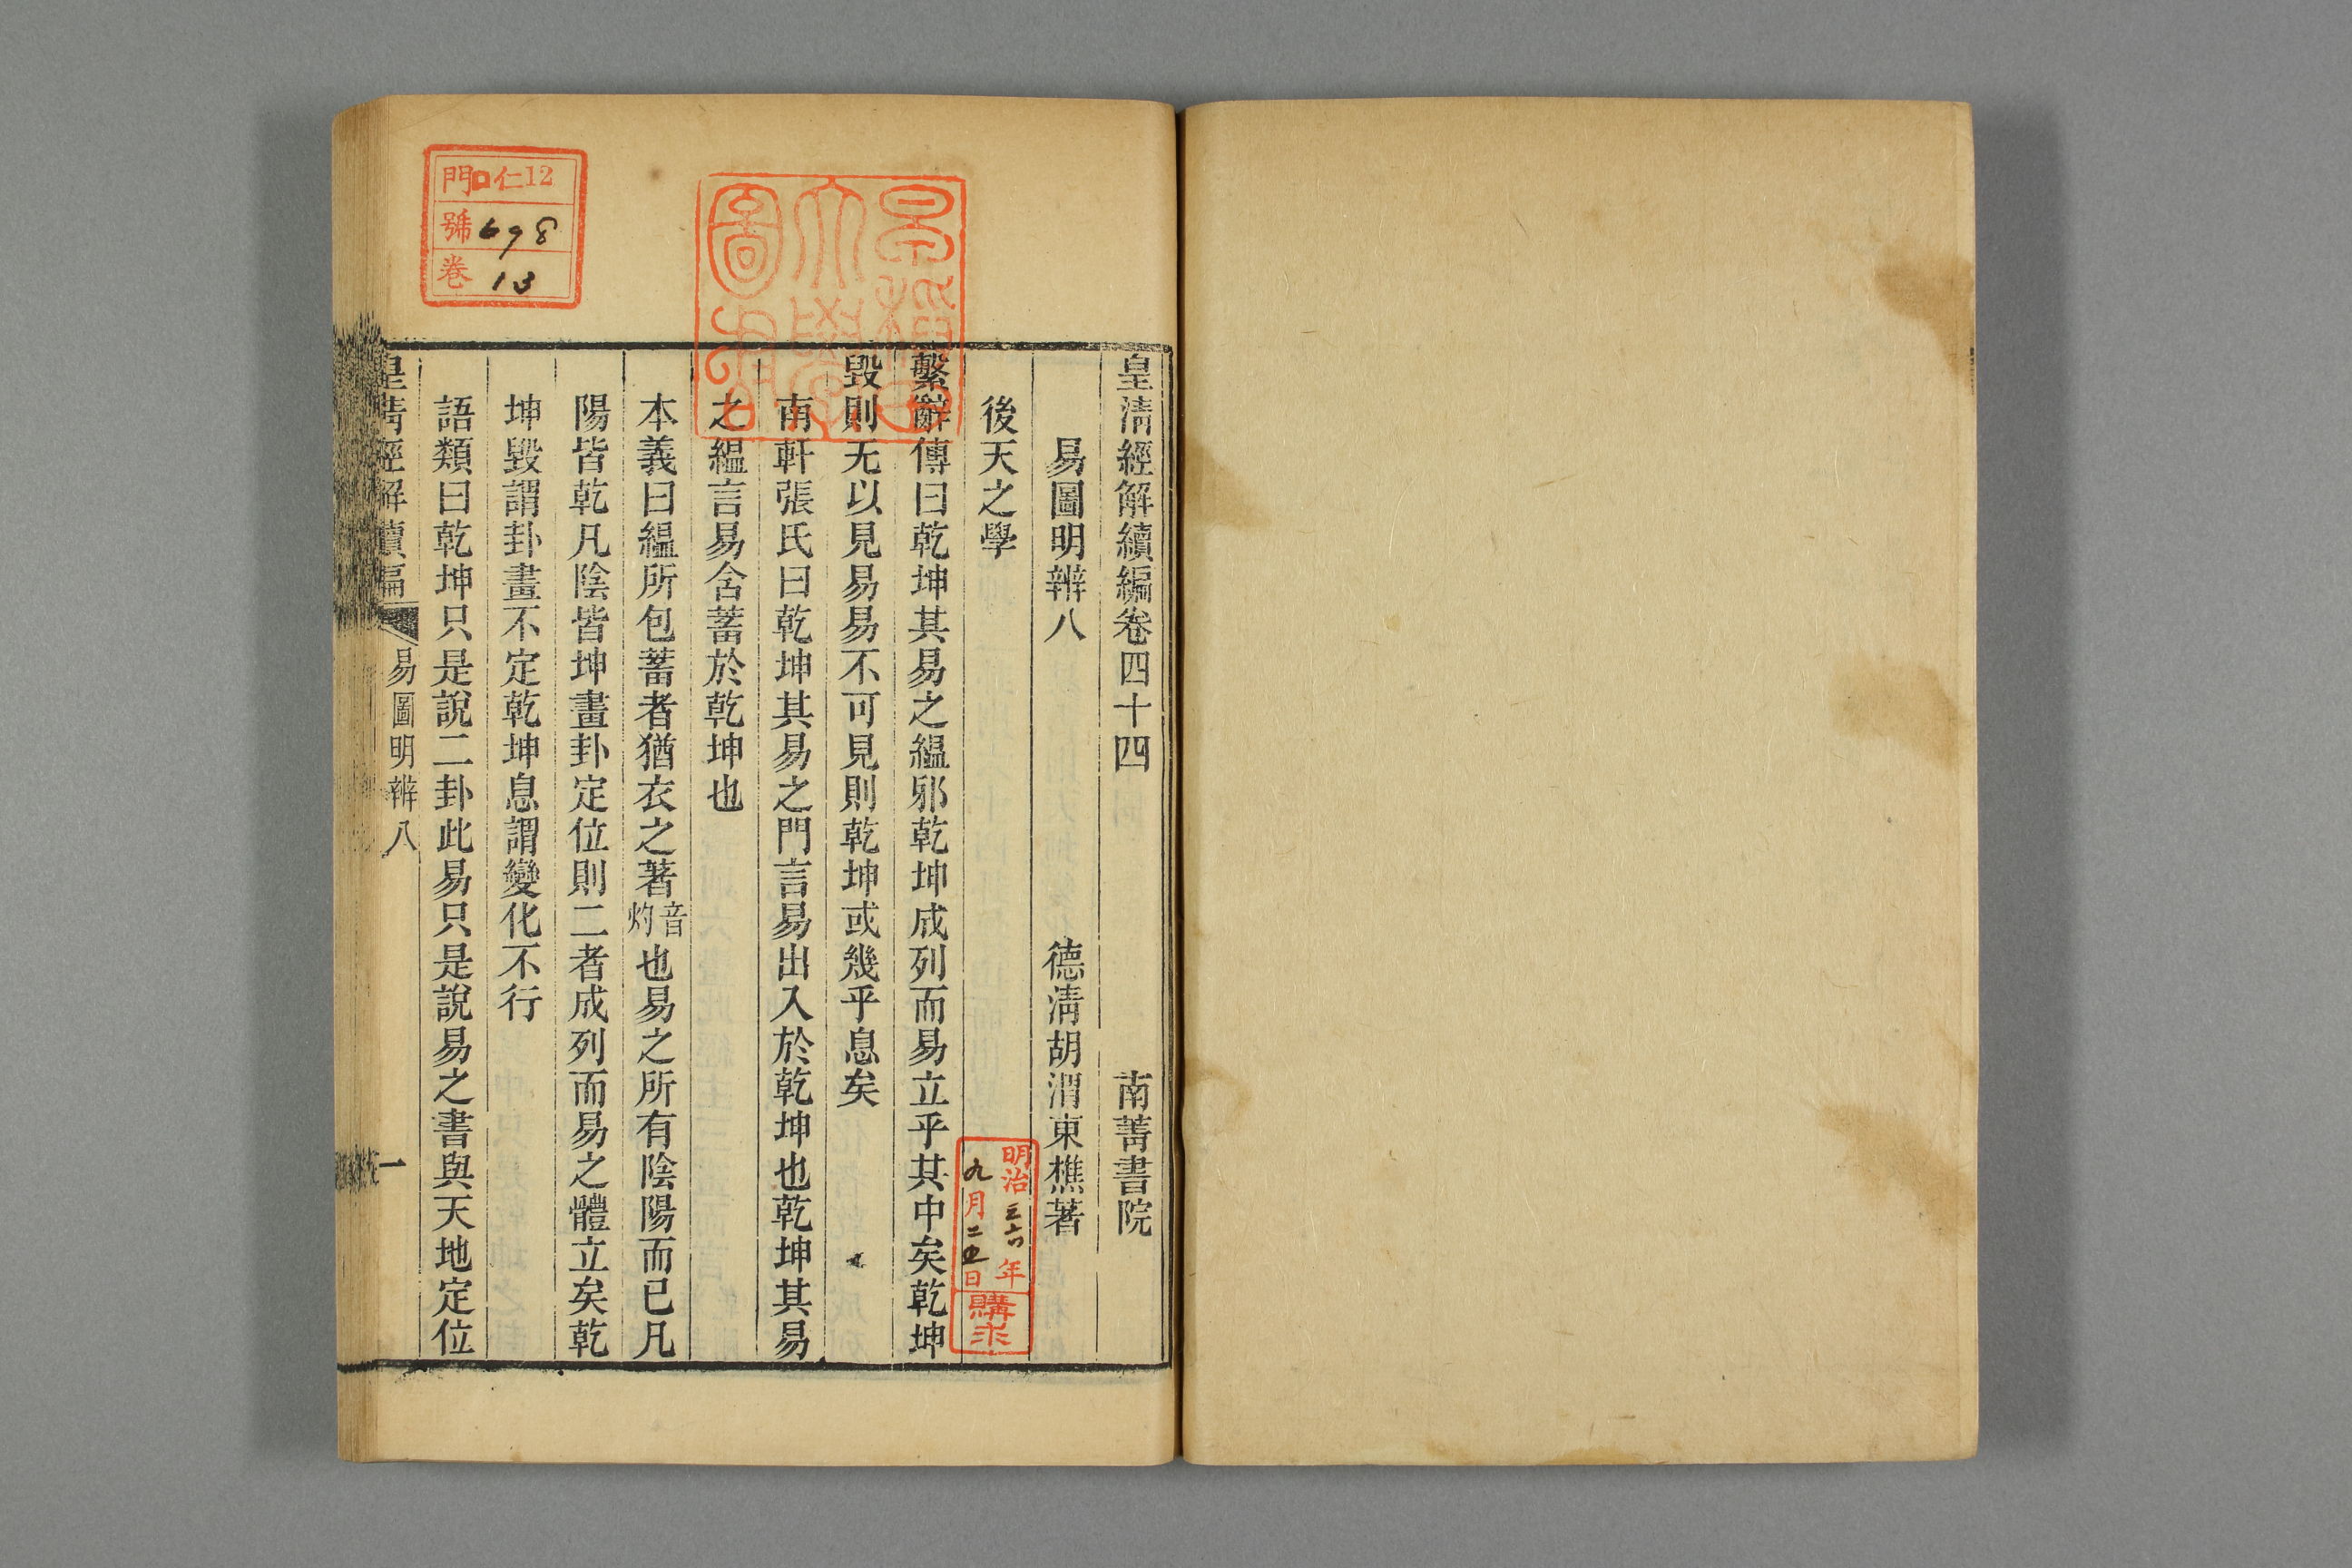 皇清經解續編卷四十四 南菁書院
易圖明辨八 德清胡渭東樵著
後天之學
繫辭傳曰乾坤其易之緼邪乾坤成列而易立乎其中矣乾坤
毀則无以見易易不可見則乾坤或幾乎息矣
南軒張氏曰乾坤其易之門言易出入於乾坤也乾坤其易
之緼言易含蓄於乾坤也
本義曰緼所包蓄者猶衣之著音灼也易之所有陰陽而已凡
陽皆乾凡陰皆坤畫卦定位則二者成列而易之體立矣乾
坤毀謂卦畫不定乾坤息謂變化不行
語類曰乾坤只是說二卦此易只是說易之書與天地定位
皇清經解續編 易圖明辨八 一
早稲田大學圖書
門口仁12
號698
卷13
明治三六年
九月二五日
購求